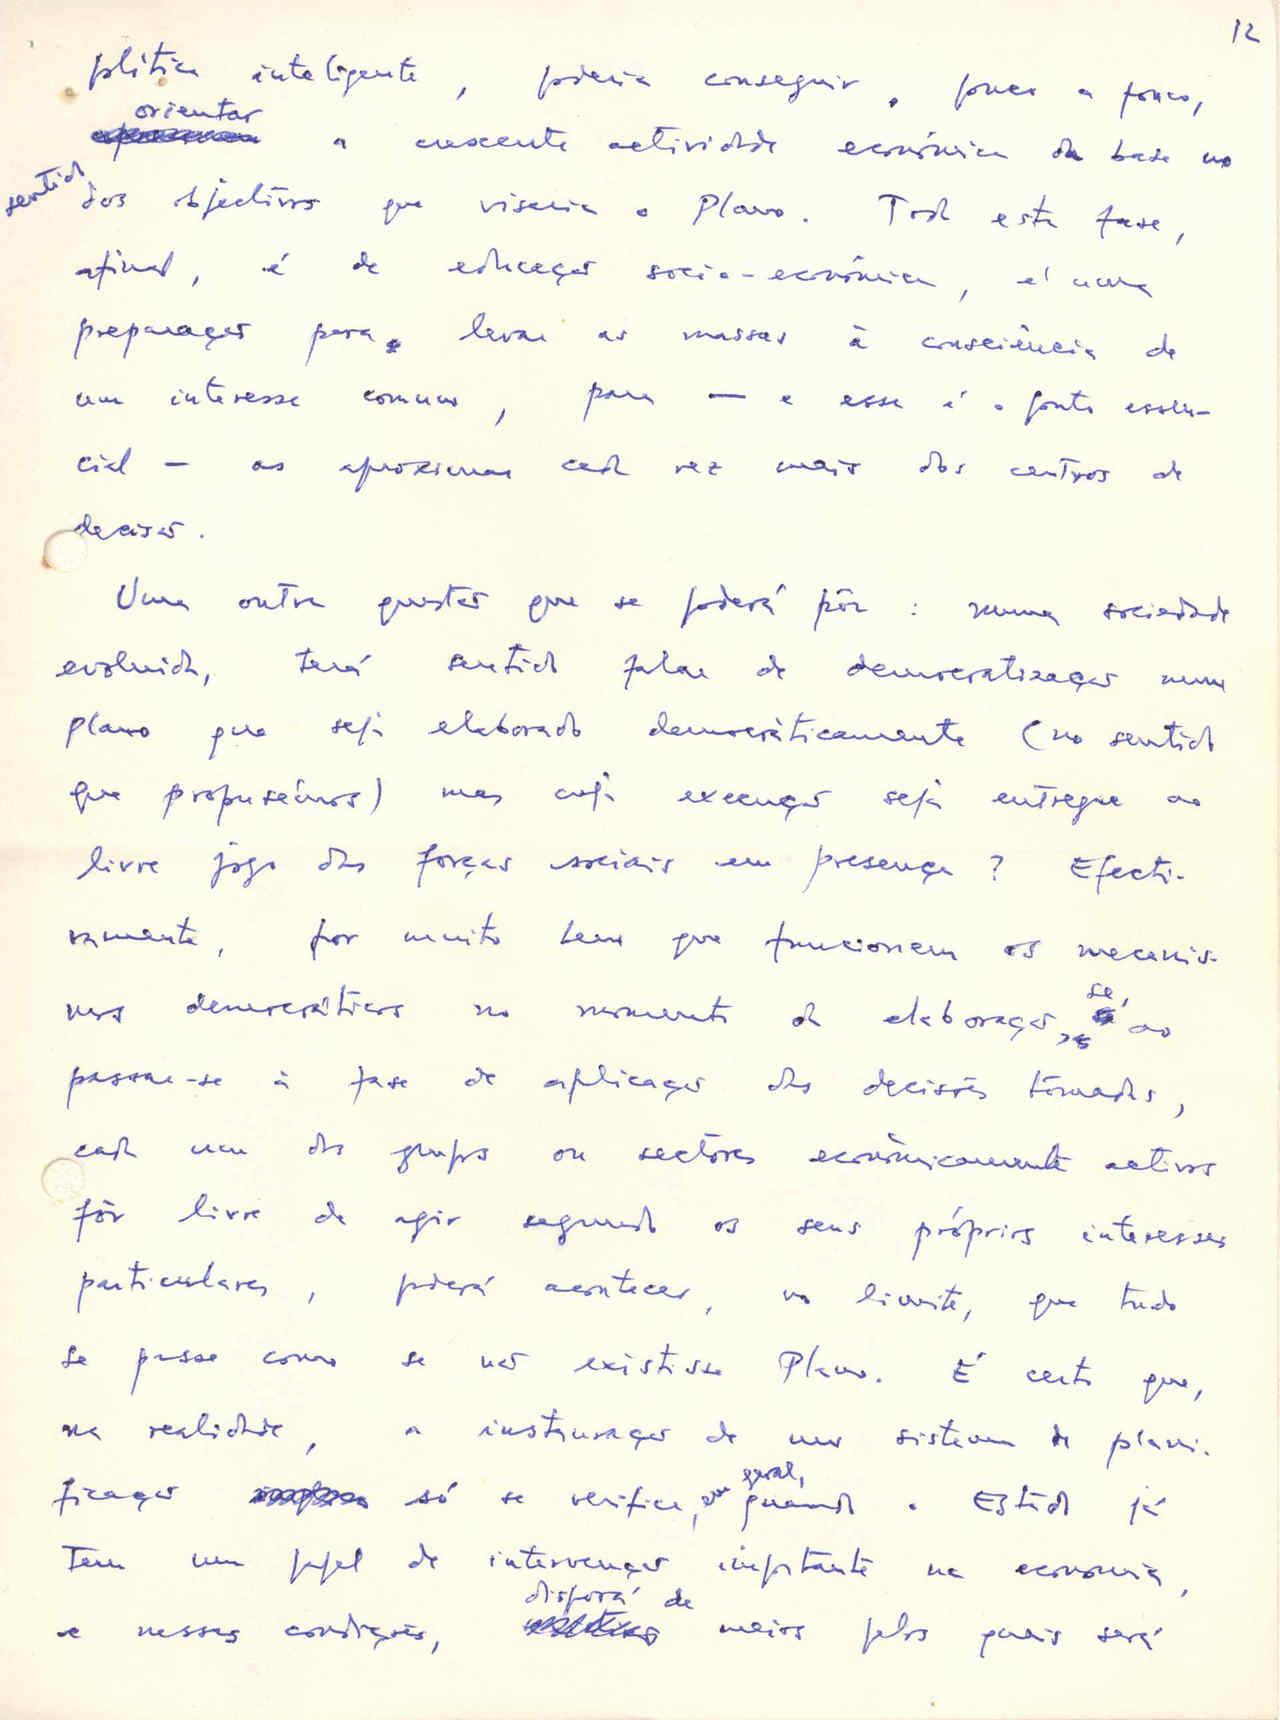 12
política inteligente, poderia conseguir, pouco a pouco,
orientar a crescente actividade económica da base no
sentido dos objectivos que visaria o Plano. Toda esta fase,
afinal, é de educação socio-económica, é uma
preparação para levar as massas à consciência de
um interesse comum, para — e esse é o ponto essen-
cial — as aproximar cada vez mais dos centros de
decisão.
Uma outra questão que se poderá pôr: numa sociedade
evoluida, terá sentido falar de democratização num
plano que seja elaborado democràticamente (no sentido
que propusémos) mas cuja execução seja entregue ao
livre jogo das forças sociais em presença? Efecti-
vamente, por muito bem que funcionem os mecanis-
mos democráticos no momento da elaboração, se, ao
passar-se à fase de aplicação das decisões tomadas,
cada um dos grupos ou sectores econòmicamente activos
fôr livre de agir segundo os seus próprios interesses
particulares, poderá acontecer, no limite, que tudo
se passe como se não existisse Plano. É certo que,
na realidade, a instauração de um sistema de plani-
ficação só se verifica, em geral, quando o Estado já
tem um papel de intervenção importante na economia,
e nessas condições, disporá de meios pelos quais será